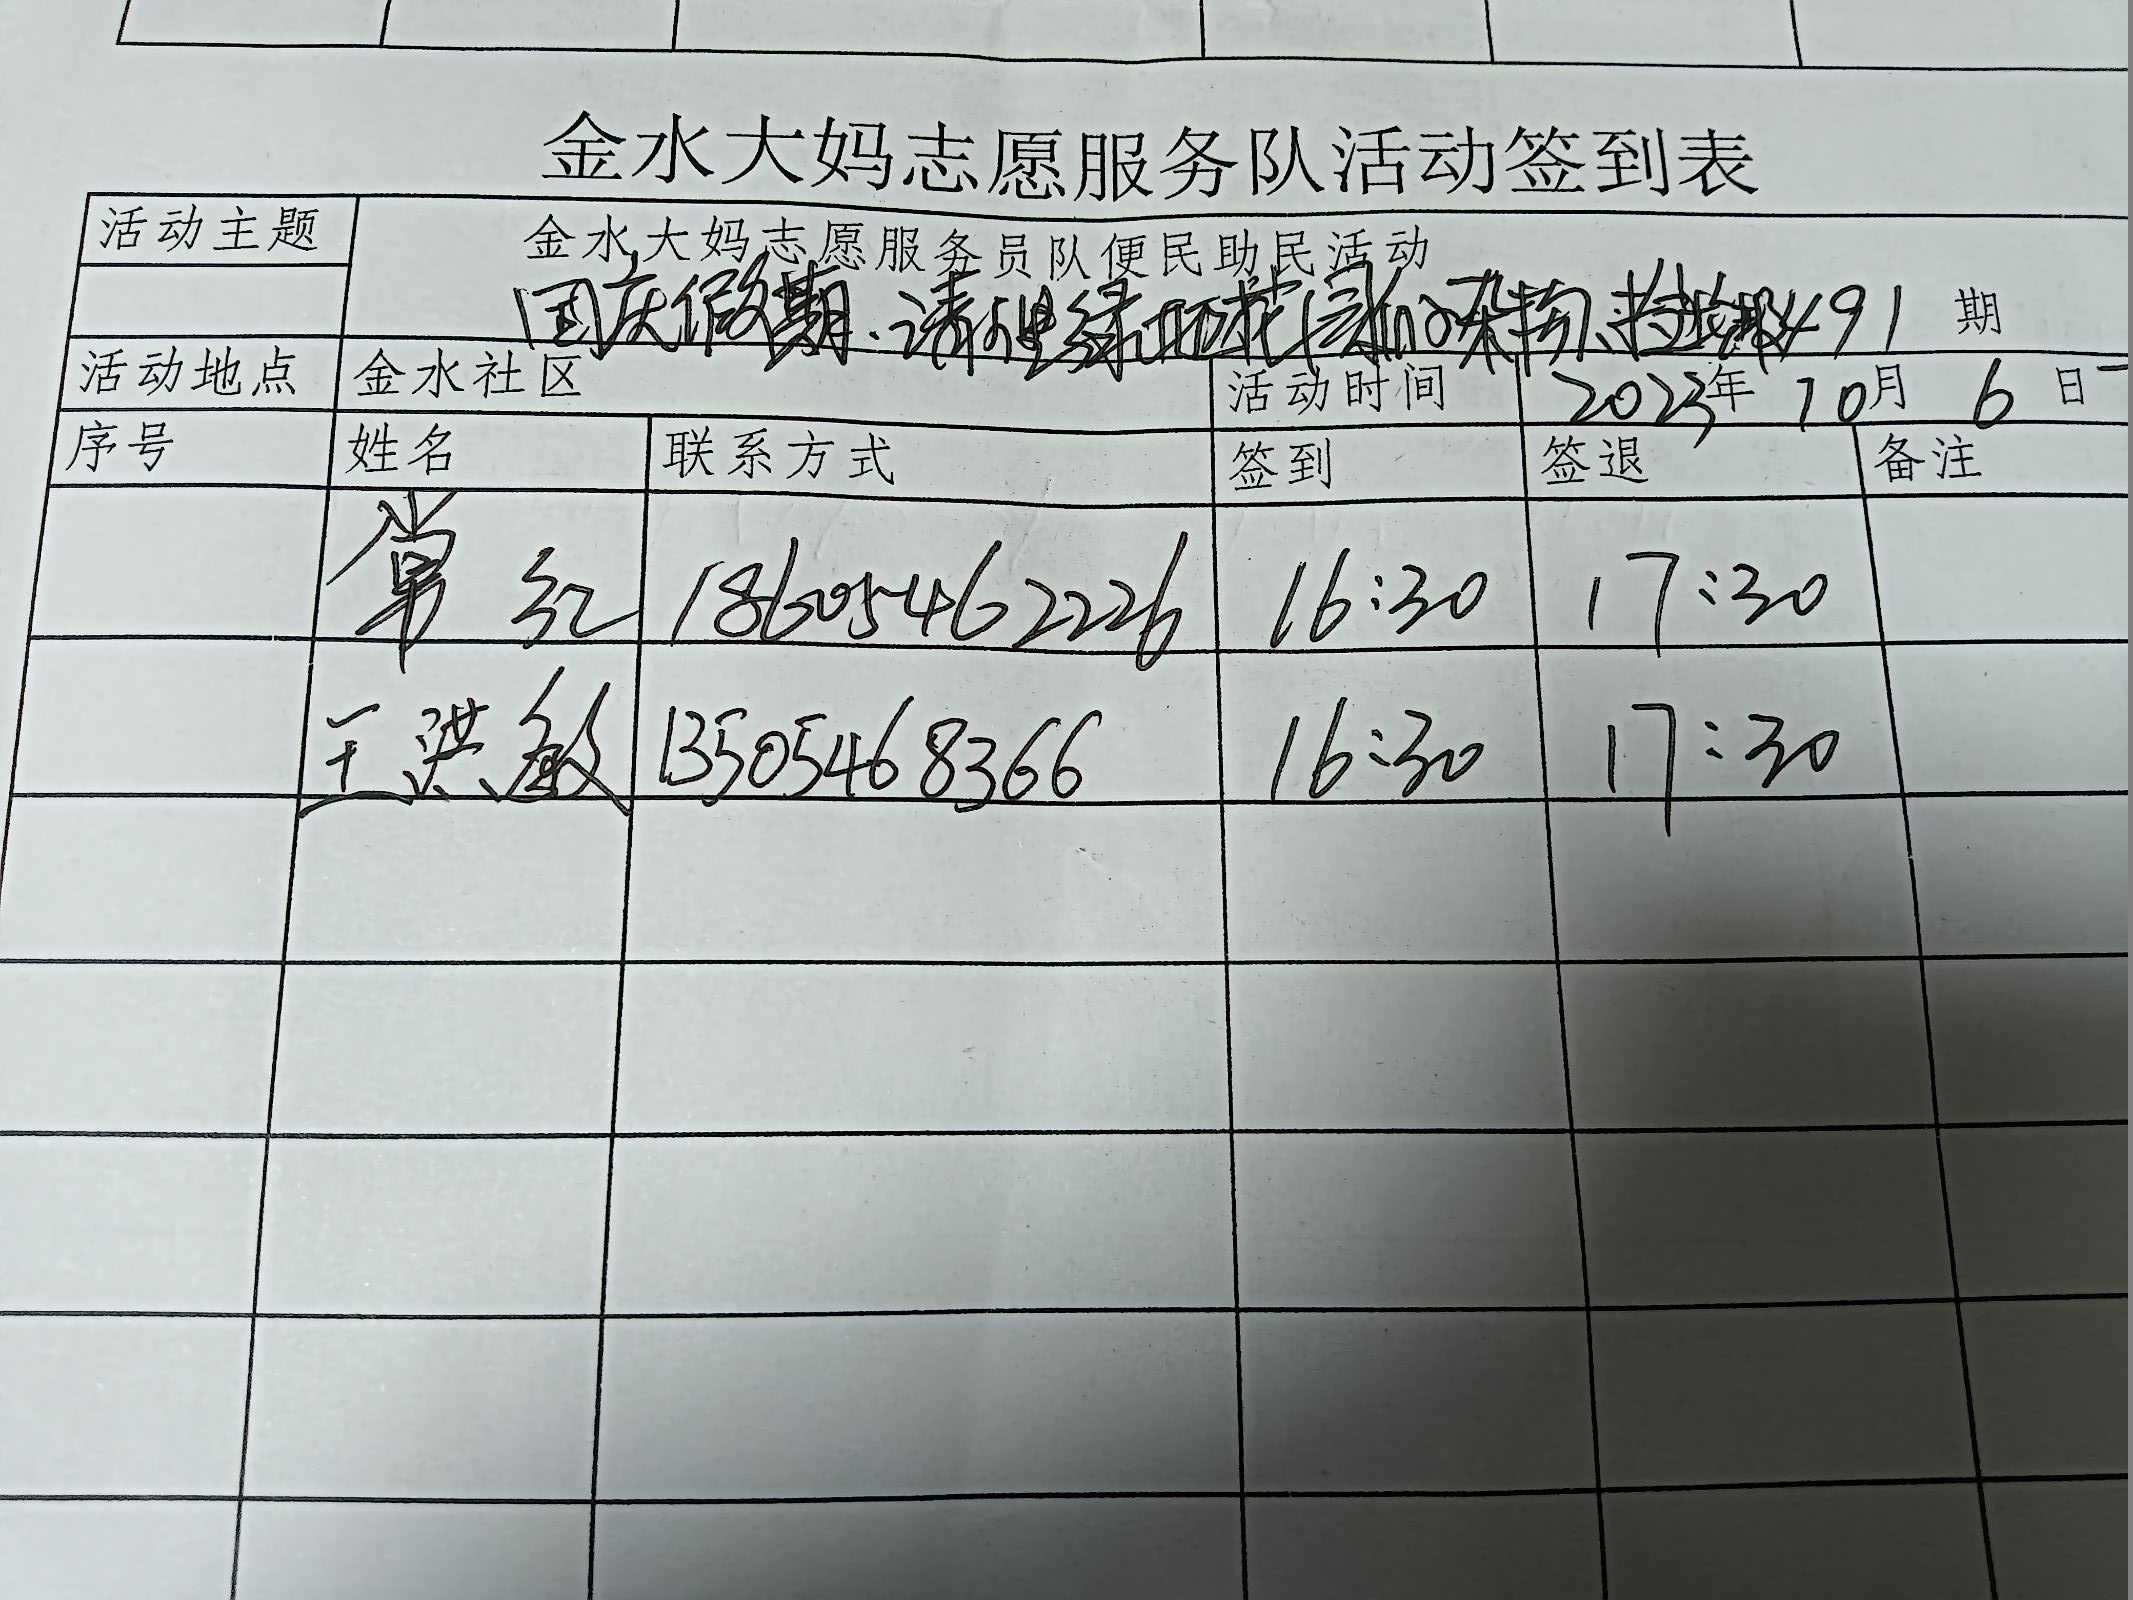 金水大妈志愿服务队活动签到表
活动主题 金水大妈志愿服务员队便民助民活动
国庆假期、清理绿地花园的杂物、 491 期
活动地点 金水社区 活动时间 2023年 10月 6 日
序号 姓名 联系方式 签到 签退 备注
常红 18605462226 16:30 17:30
王洪敏 13505468366 16:30 17:30